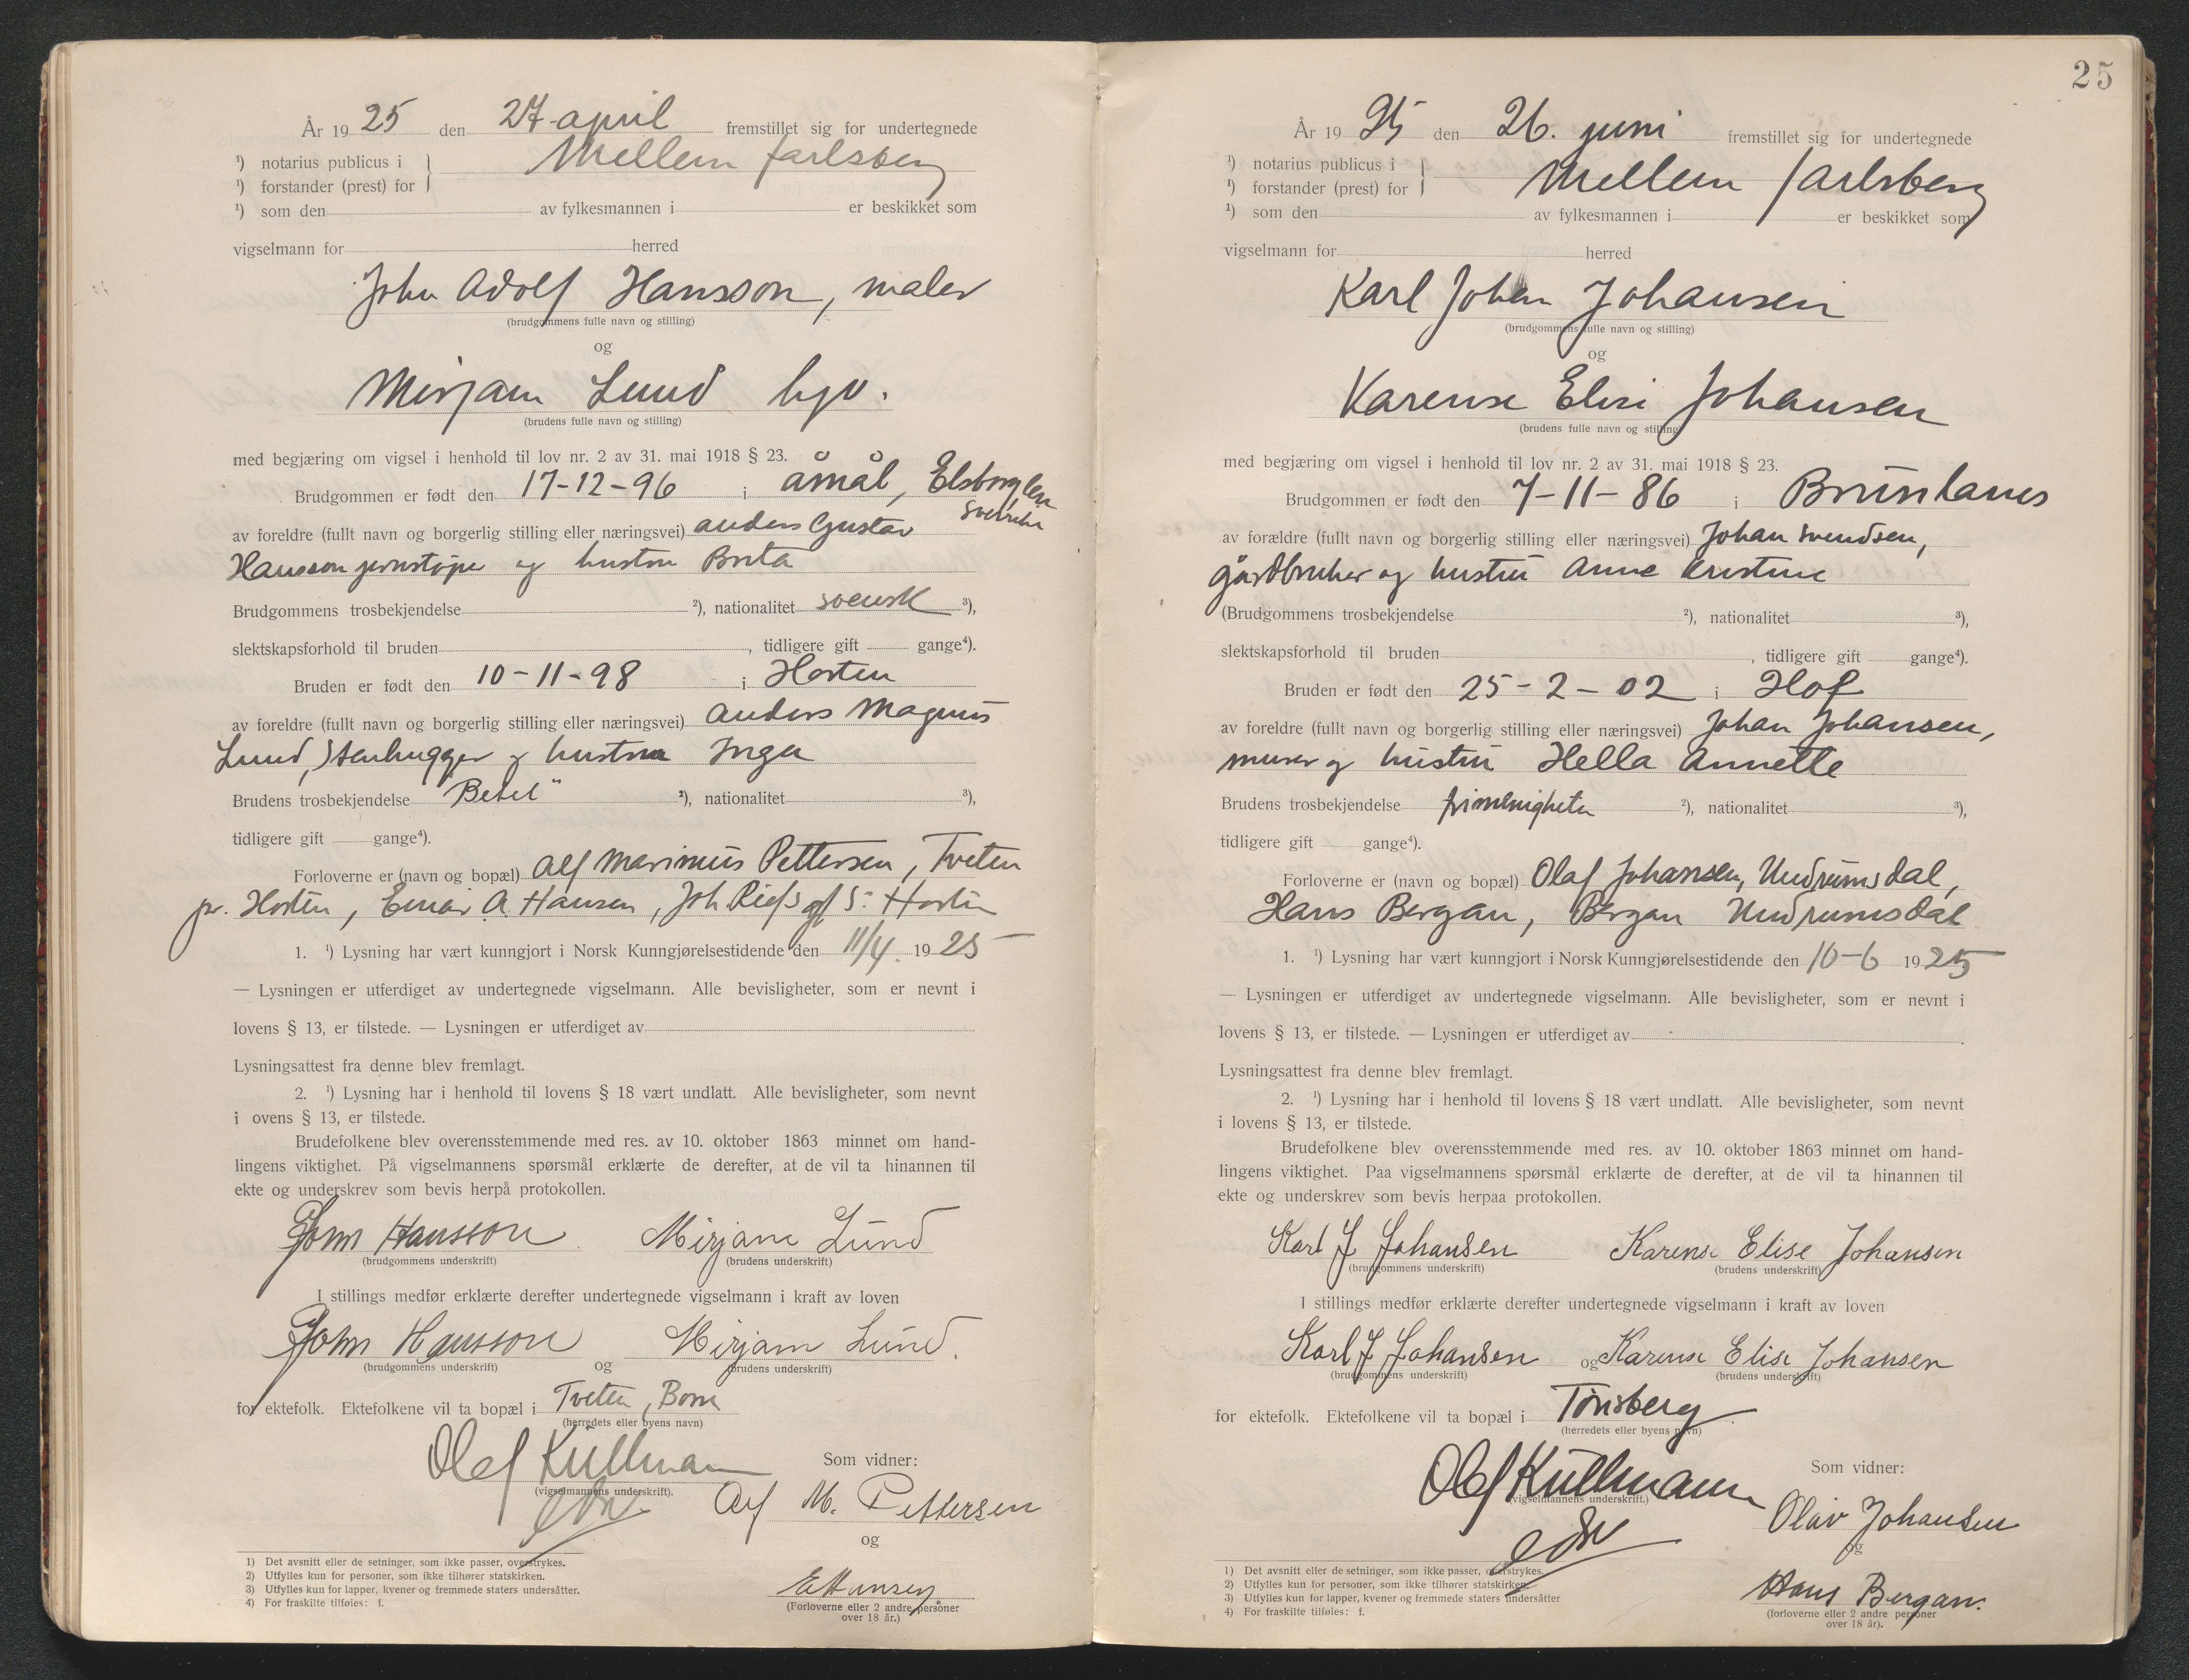 År 1925 den 27 april fremstillet sig for undertegnede
¹) notarius publicus i
¹) forstander (prest) for
Mellem Jarlsberg
¹) som den av fylkesmannen i er beskikket som
vigselmann for herred
John Adolf Hansson, maler
(brudgommens fulle navn og stilling)
og
Mirjam Lund hjv.
(brudens fulle navn og stilling)
med begjæring om vigsel i henhold til lov nr. 2 av 31. mai 1918 § 23.
Brudgommen er født den 17-12-96 i Åmål, Elsborglen
Sverike
av foreldre (fullt navn og borgerlig stilling eller næringsvei) Anders Gustav
Hansson jernstøper og hustru Brita
Brudgommens trosbekjendelse ²), nationalitet svensk ³),
slektskapsforhold til bruden , tidligere gift gange⁴).
Bruden er født den 10-11-98 i Horten
av foreldre (fullt navn og borgerlig stilling eller næringsvei) Anders Magnus
Lund, Stenhugger og hustru Inga
Brudens trosbekjendelse "Betel" ²), nationalitet ³),
tidligere gift gange⁴).
Forloverne er (navn og bopæl) Alf Marinius Pettersen, Tveten
pr. Horten, Einar A. Hansen, Joh. gt 5. Horten
1. ¹) Lysning har vært kunngjort i Norsk Kunngjørelsestidende den 11/4 1925
— Lysningen er utferdiget av undertegnede vigselmann. Alle bevisligheter, som er nevnt i
lovens § 13, er tilstede. — Lysningen er utferdiget av
Lysningsattest fra denne blev fremlagt.
2. ¹) Lysning har i henhold til lovens § 18 vært undlatt. Alle bevisligheter, som nevnt
i ovens § 13, er tilstede.
Brudefolkene blev overensstemmende med res. av 10. oktober 1863 minnet om hand-
lingens viktighet. På vigselmannens spørsmål erklærte de derefter, at de vil ta hinannen til
ekte og underskrev som bevis herpå protokollen.
John Hansson Mirjam Lund
(brudgommens underskrift) (brudens underskrift)
I stillings medfør erklærte derefter undertegnede vigselmann i kraft av loven
John Hansson og Mirjam Lund.
(brudgommens underskrift) (brudens underskrift)
for ektefolk. Ektefolkene vil ta bopæl i Tveten, Borre
(herredets eller byens navn)
Olaf Kullmann
(vigselmannens underskrift).
Som vidner:
Alf M. Pettersen
og
E Hansen
(Forloverne eller 2 andre personer
over 18 år.)
1) Det avsnitt eller de setninger, som ikke passer, overstrykes.
2) Utfylles kun for personer, som ikke tilhører statskirken.
3) Utfylles kun for lapper, kvener og fremmede staters undersåtter.
4) For fraskilte tilføies: f.
25
År 1925 den 26. juni fremstillet sig for undertegnede
¹) notarius publicus i
¹) forstander (prest) for
Mellem Jarlsberg
¹) som den av fylkesmannen i er beskikket som
vigselmann for herred
Karl Johan Johansen
(brudgommens fulle navn og stilling)
og
Karense Elise Johansen
(brudens fulle navn og stilling)
med begjæring om vigsel i henhold til lov nr. 2 av 31. mai 1918 § 23.
Brudgommen er født den 7-11-86 i Brunlanes
av forældre (fullt navn og borgerlig stilling eller næringsvei) Johan Svendsen,
gårdbruker og hustru Anne Kristine
(Brudgommens trosbekjendelse ²), nationalitet ³),
slektskapsforhold til bruden , tidligere gift gange⁴).
Bruden er født den 25-2-02 i Hof
av foreldre (fullt navn og borgerlig stilling eller næringsvei) Johan Johansen,
murer og hustru Hella Annette
Brudens trosbekjendelse frimenigheten ²), nationalitet ³),
tidligere gift gange⁴).
Forloverne er (navn og bopæl) Olaf Johansen, Undrumsdal,
Hans Bergan, Bergan Undrumsdal
1. ¹) Lysning har vært kunngjort i Norsk Kunngjørelsestidende den 10-6 1925
— Lysningen er utferdiget av undertegnede vigselmann. Alle bevisligheter, som er nevnt i
lovens § 13, er tilstede. — Lysningen er utferdiget av
Lysningsattest fra denne blev fremlagt.
2. ¹) Lysning har i henhold til lovens § 18 vært undlatt. Alle bevisligheter, som nevnt
i lovens § 13, er tilstede.
Brudefolkene blev overensstemmende med res. av 10. oktober 1863 minnet om hand-
lingens viktighet. Paa vigselmannens spørsmål erklærte de derefter, at de vil ta hinannen til
ekte og underskrev som bevis herpaa protokollen.
Karl J Johansen Karense Elise Johansen
(brudgommens underskrift) (brudens underskrift)
I stillings medfør erklærte derefter undertegnede vigselmann i kraft av loven
Karl J Johansen og Karense Elise Johansen
(brudgommens underskrift) (brudens underskrift)
for ektefolk. Ektefolkene vil ta bopæl i Tønsberg
(herredets eller byens navn)
Olaf Kullmann
(vigselmannens underskrift.)
Som vidner:
Olav Johansen
og
Hans Bergan.
(forloverne eller 2 andre personer
over 18 år).
1) Det avsnitt eller de setninger, som ikke passer, overstrykes.
2) Utfylles kun for personer, som ikke tilhører statskirken.
3) Utfylles kun for lapper, kvener og fremmede staters undersåtter
4) For fraskilte tilføies: f.